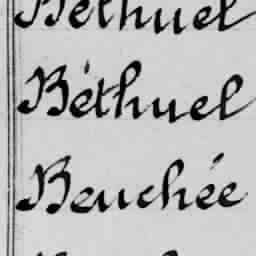 Béthuel
Béthuel
Beuchée